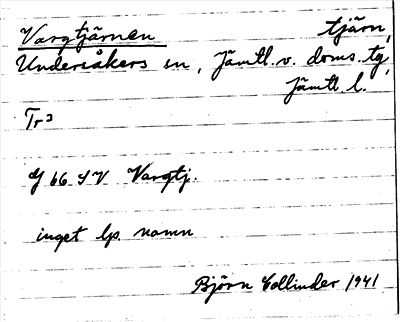 Vargtjärnen tjärn,
Undersåkers sn, Jämtl. v. doms. tg,
Jämtl l.
Tr3
G 66 SV Vargtj.
inget lp. namn
Björn Collinder 1941